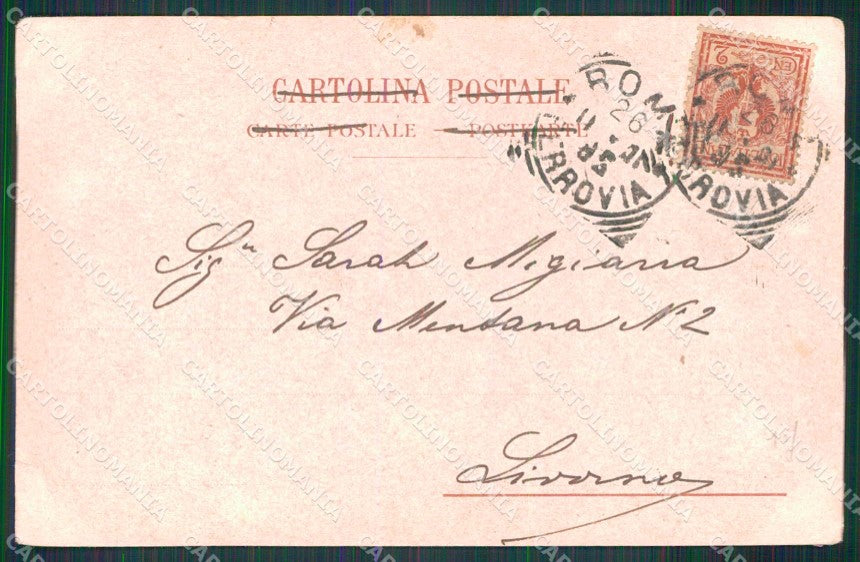 CARTOLINA POSTALE
CARTE POSTALE POSTKARTE
ROMA
26
FERROVIA
2
Sigⁿᵃ Sarah Migiarra
Via Mentana Nº 2
Livorno
CARTOLINOMANIA